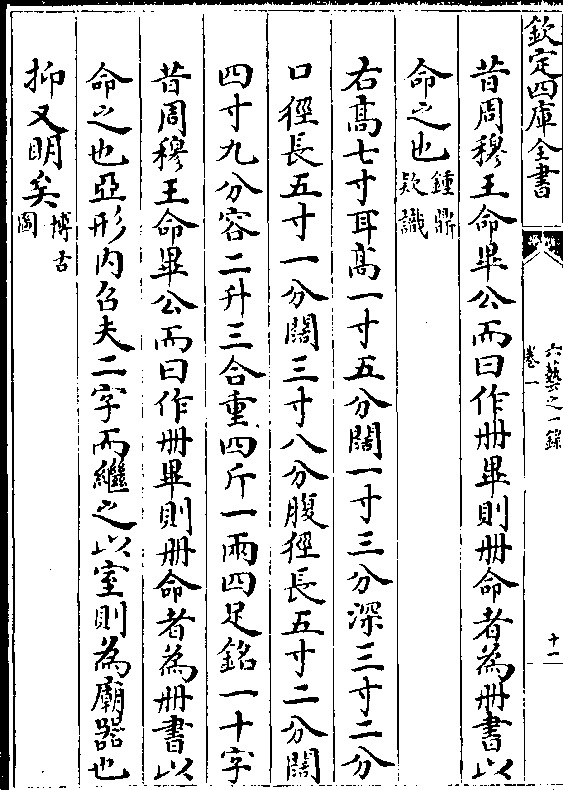 欽定四庫全書
六藝之一錄
卷一
十一
昔周穆王命畢公而曰作冊畢則冊命者為冊書以
命之也鍾鼎
欵識
右髙七寸耳髙一寸五分闊一寸三分深三寸二分
口徑長五寸一分闊三寸八分腹徑長五寸二分闊
四寸九分容二升三合重四斤一兩四足銘一十字
昔周穆王命畢公而曰作冊畢則冊命者為冊書以
命之也亞形内召夫二字而繼之以室則為廟器也
抑又明矣博古
圖